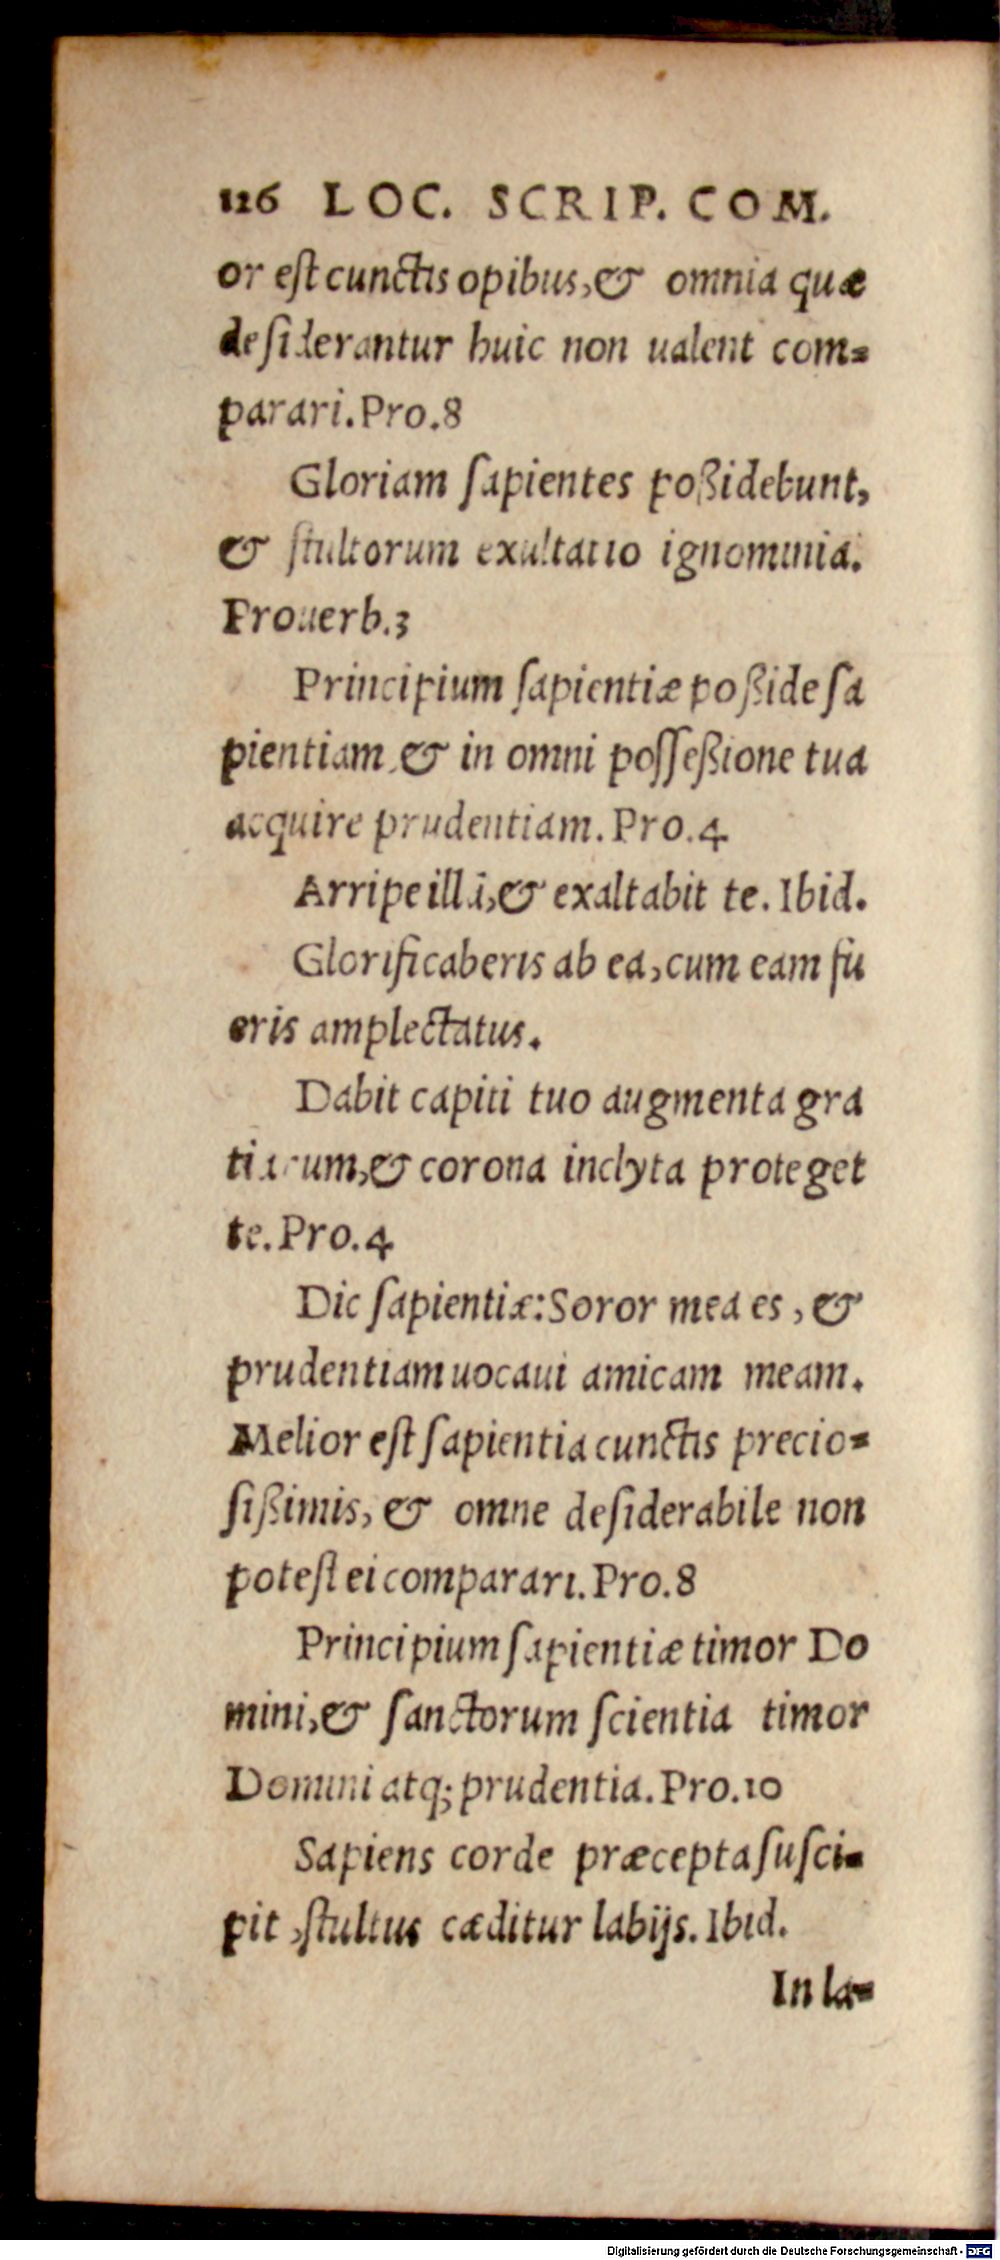 126 LOC. SCRIP. COM.
or est cunctis opibus, & omnia quæ
desiderantur huic non ualent com-
parari. Pro. 8
Gloriam sapientes poßidebunt,
& stultorum exultatio ignominia.
Prouerb. 3
Principium sapientiæ poßide sa
pientiam, & in omni posseßione tua
acquire prudentiam. Pro. 4
Arripe illā, & exaltabit te. Ibid.
Glorificaberis ab ea, cum eam fu
eris amplectatus.
Dabit capiti tuo augmenta gra
tiarum, & corona inclyta proteget
te. Pro. 4
Dic sapientiæ: Soror mea es, &
prudentiam uocaui amicam meam.
Melior est sapientia cunctis precio-
sißimis, & omne desiderabile non
potest ei comparari. Pro. 8
Principium sapientiæ timor Do
mini, & sanctorum scientia timor
Domini atq; prudentia. Pro. 10
Sapiens corde præcepta susci-
pit, stultus cæditur labijs. Ibid.
In la-
Digitalisierung gefördert durch die Deutsche Forschungsgemeinschaft - DFG